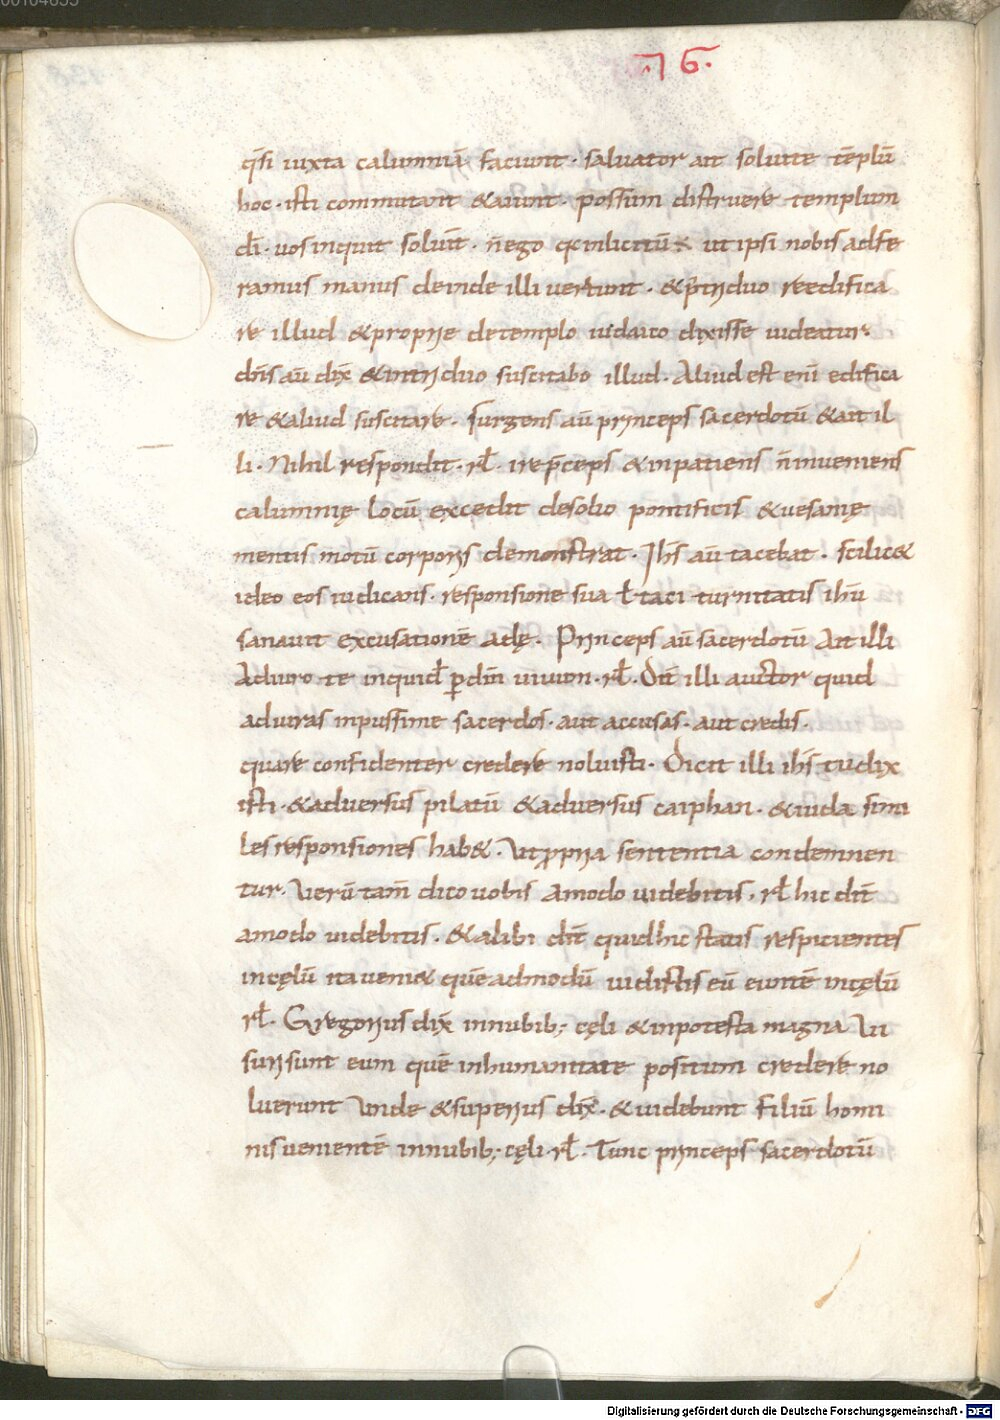 00104655
76.
q̄si iuxta calumniā faciunt · saluator ait soluite tēplū
hoc · isti commutant & aiunt · possum distruere templum
dī · uos inquit soluit̄ · n̄ ego q inlicitū ut ipsi nobis adfe
ramus manus deinde illi uertunt · & p̄ triduo reedifica
re illud & proprie de templo iudaico dixisse uideatur·
dn̄s aū dix̄ & in triduo suscitabo illud · Aliud est enī edifica
re & aliud suscitare · surgens aū princeps sacerdotū & ait il
li · Nihil respondit · rł · ire p̄nceps & inpatiens n̄ inueniens
calumnię locū excedit de solio pontificis & uesanię
mentis motū corporis demonstrat · Ihs̄ aū tacebat · scilic&
ideo eos iudicans · responsione sua ł taciturnitatis ihū
sanauit excusationē adę · Princeps aū sacerdotū Ait illi
Adiuro te inquid p dm̄ uiuum · rł · Dit̄ illi auctor quid
adiuras inpussime sacerdos · aut accusas · aut credis ·
quare confidenter credere noluisti · Dicit illi ihs̄ tu dix
isti · & aduersus pilatū & aduersus caiphan · & iuda simi
les responsiones hab& · Ut ppria sententia condemnen
tur · Uerū tam̄ dico uobis Amodo uidebitis · rł hic dit̄
amodo uidebitis · & alibi dit̄ quid hic statis respicientes
in cęlū ita ueni& quēadmodū uidistis eū euntē in cęlū
rł · Gregorius dix̄ in nubib; cęli & in potesta magna Ui
suri sunt eum quē in humanitate positum credere no
luerunt Unde & superius dix̄ · & uidebunt filiū homi
nis uenientē in nubib; cęli · rł · Tunc princeps sacerdotū
Digitalisierung gefördert durch die Deutsche Forschungsgemeinschaft - DFG